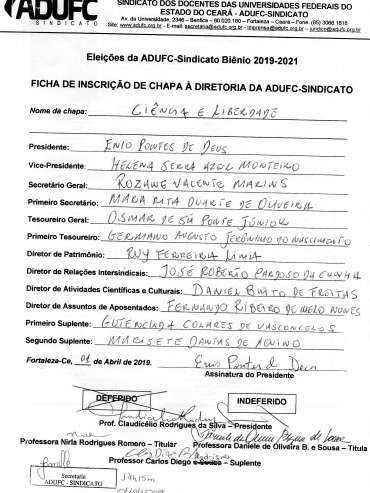 ADUFC
SINDICATO
SINDICATO DOS DOCENTES DAS UNIVERSIDADES FEDERAIS DO
ESTADO DO CEARÁ - ADUFC-SINDICATO
Av. da Universidade, 2346 – Benfica – 60.020.180 – Fortaleza – Ceará – Fone: (85) 3066.1818
Site: www.adufc.org.br - E-mail: secretaria@adufc.org.br - imprensa@adufc.org.br – juridico@adufc.org.br
Eleições da ADUFC-Sindicato Biênio 2019-2021
FICHA DE INSCRIÇÃO DE CHAPA À DIRETORIA DA ADUFC-SINDICATO
Nome da chapa: CIÊNCIA E LIBERDADE
Presidente: ENIO PONTES DE DEUS
Vice-Presidente: HELENA SERRA AZUL MONTEIRO
Secretário Geral: ROZANE VALENTE MARINS
Primeiro Secretário: MARIA RITA DUARTE DE OLIVEIRA
Tesoureiro Geral: OSMAR DE SÁ PONTE JÚNIOR
Primeiro Tesoureiro: GERMANO AUGUSTO JERÔNIMO DO NASCIMENTO
Diretor de Patrimônio: RUY FERREIRA LIMA
Diretor de Relações Intersindicais: JOSÉ ROBERTO CARDOSO DA CUNHA
Diretor de Atividades Científicas e Culturais: DANIEL BRITO DE FREITAS
Diretor de Assuntos de Aposentados: FERNANDO RIBEIRO DE MELO NUNES
Primeiro Suplente: GUTENCILDA COLARES DE VASCONCELOS
Segundo Suplente: MARISETE DANTAS DE AQUINO
Fortaleza-Ce, 01 de Abril de 2019. Enio Pontes de Deus
Assinatura do Presidente
DEFERIDO INDEFERIDO
Prof. Claudicélio Rodrigues da Silva – Presidente
Professora Nirla Rodrigues Romero – Titular Professora Daniele de Oliveira B. e Sousa – Titula
Professor Carlos Diego – Suplente
Secretaria
ADUFC - SINDICATO